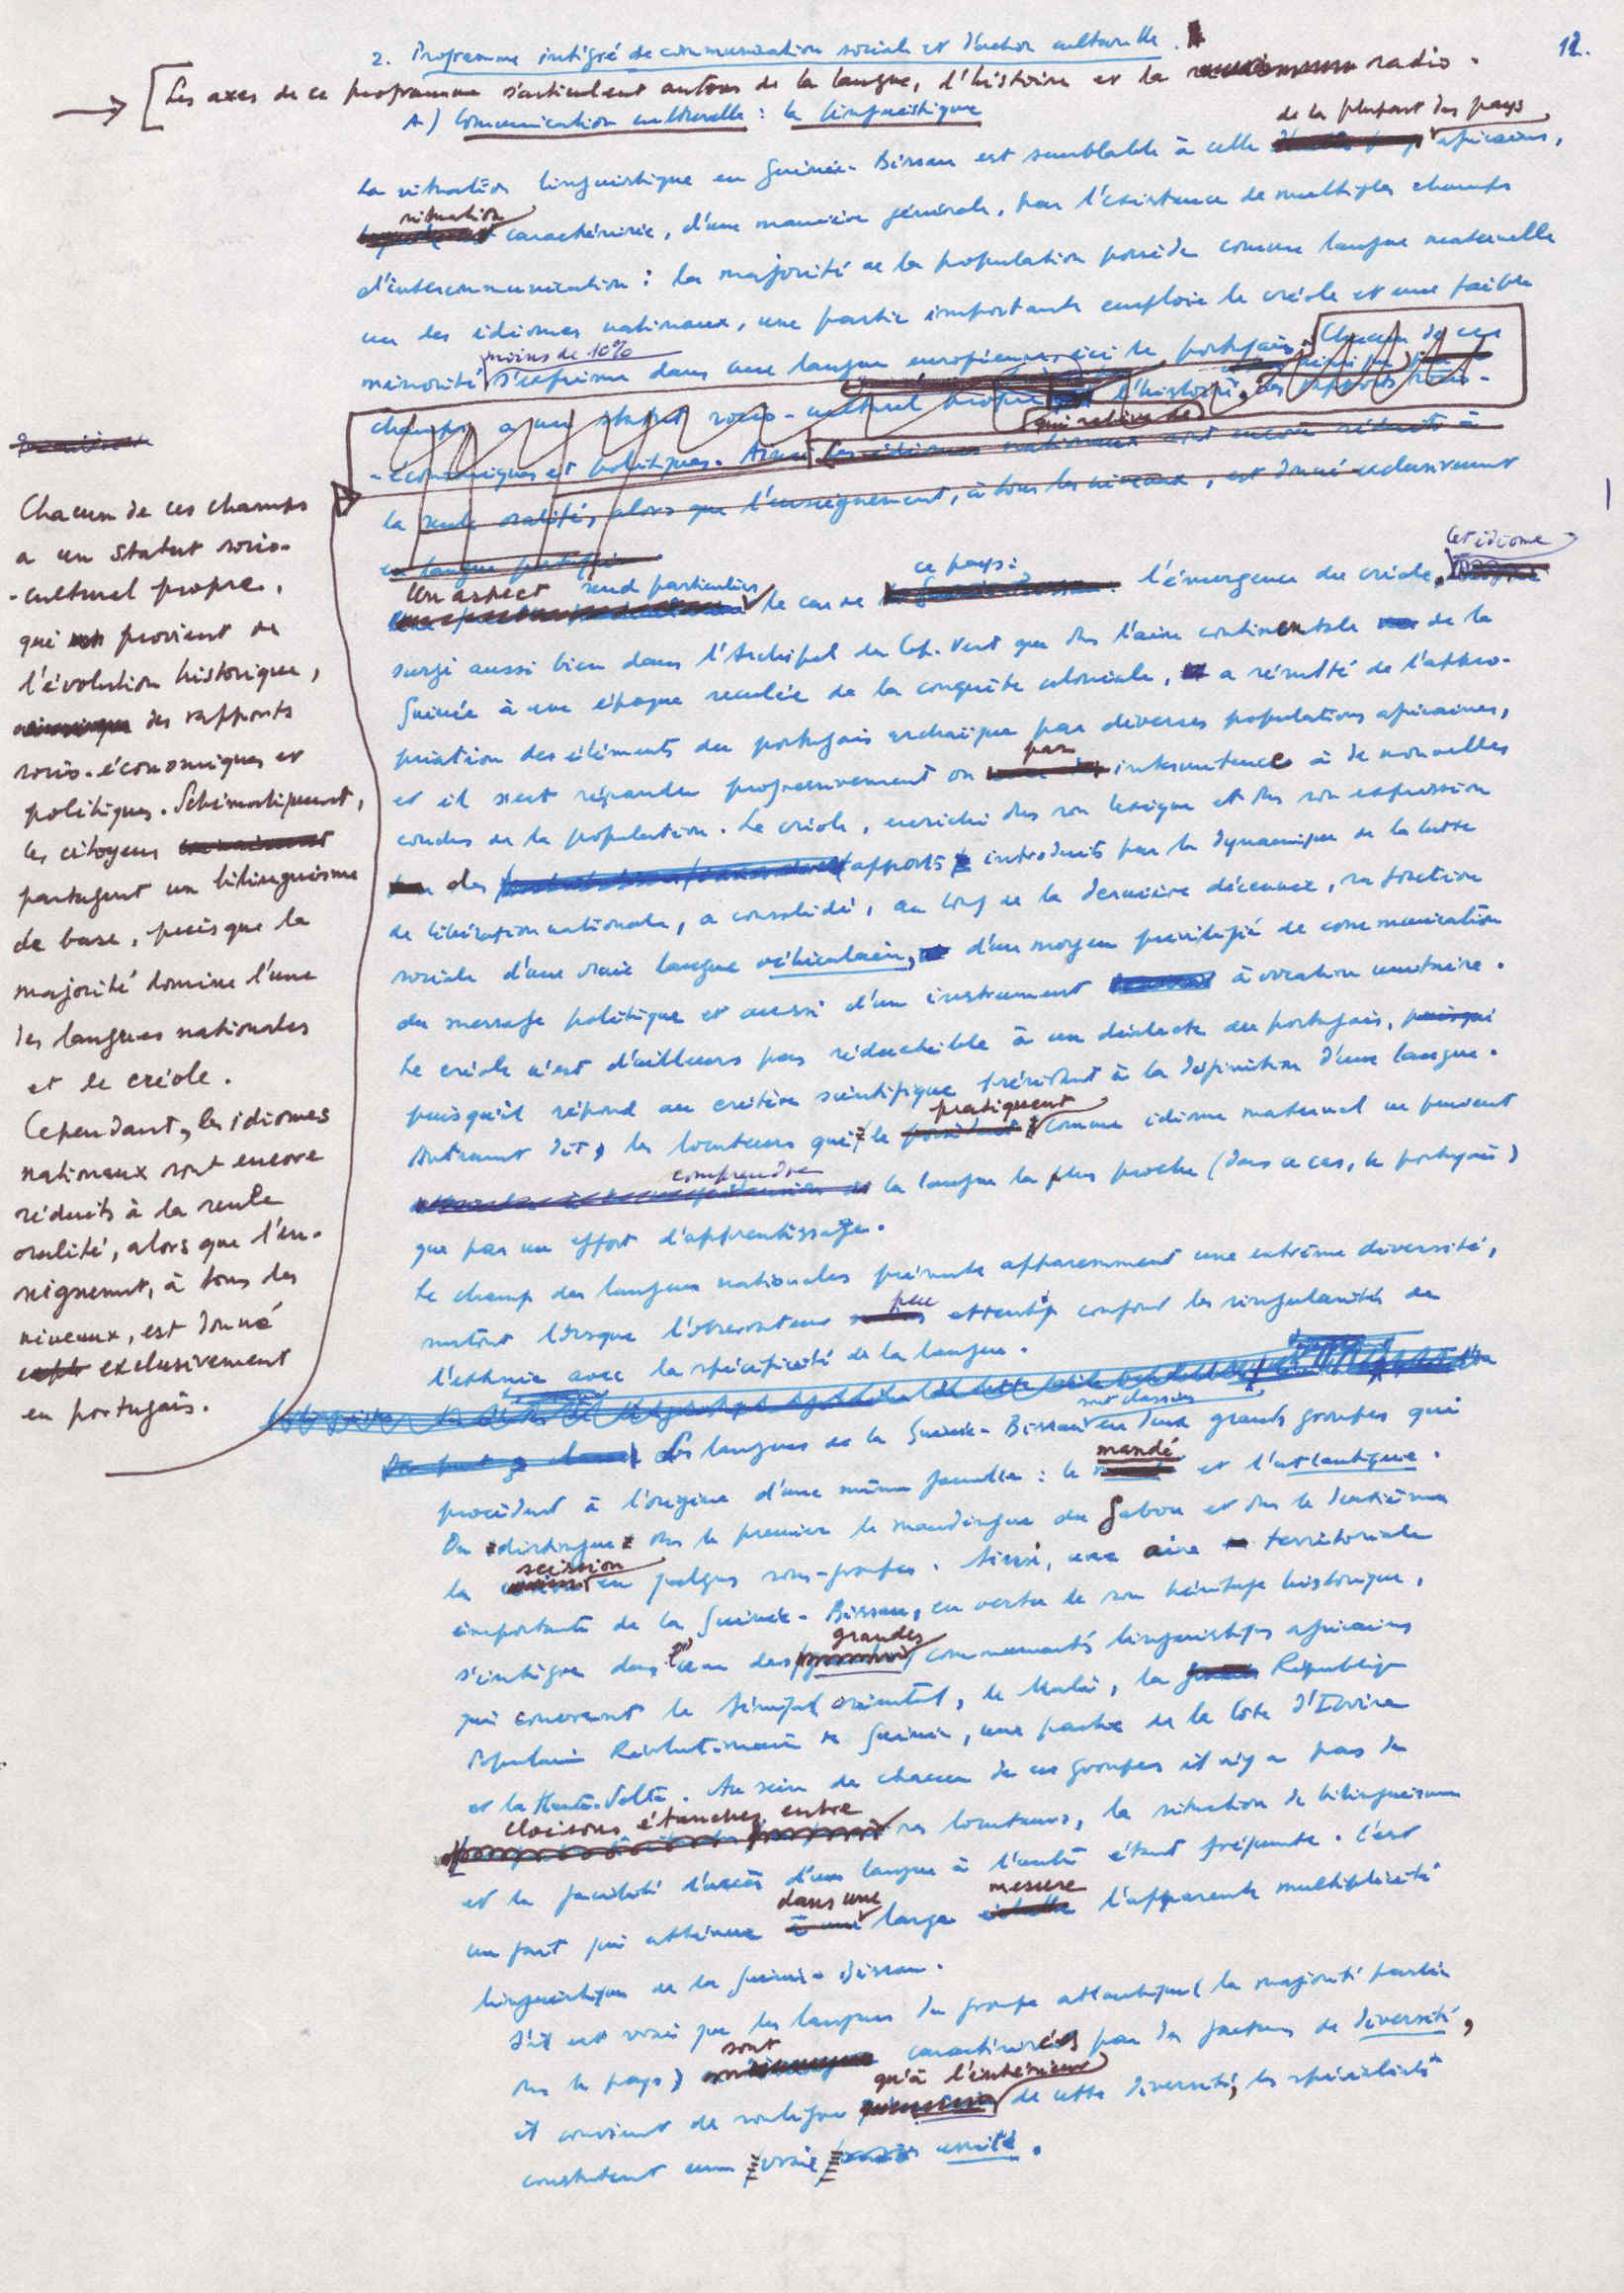 12.
2. Programme intégré de communication sociale et d'action culturelle.
Les axes de ce programme s'articulent autour de la langue, l'histoire et la radio.
A) Communication culturelle : la linguistique
de la plupart des pays
La situation linguistique en Guinée-Bissau est semblable à celle africains,
situation
caractérisée, d'une manière générale, par l'existence de multiples champs
d'intercommunication : la majorité de la population possède comme langue maternelle
un des idiomes nationaux, une partie importante emploie le créole et une faible
moins de 10%
minorité s'exprime dans une langue européenne, ici le portugais. Chacun de ces
champs a un statut socio-culturel propre l'histoire, des rapports socio-
qui relève de
-économiques et politiques. Ainsi les idiomes nationaux sont encore réduits à
la seule oralité, alors que l'enseignement, à tous les niveaux, est donné exclusivement
en langue portugaise
Chacun de ces champs
a un statut socio-
-culturel propre,
qui provient de
l'évolution historique,
des rapports
socio-économiques et
politiques. Schématiquement,
les citoyens
partagent un bilinguisme
de base, puisque la
majorité domine l'une
des langues nationales
et le créole.
Cependant, les idiomes
nationaux sont encore
réduits à la seule
oralité, alors que l'en-
seignement, à tous les
niveaux, est donné
exclusivement
en portugais.
Un aspect rend particulier ce pays : Cet idiome
le cas de l'émergence du créole.
surgi aussi bien dans l'Archipel du Cap-Vert que ds l'aire continentale de la
Guinée à une époque reculée de la conquête coloniale, a résulté de l'appro-
priation des éléments du portugais archaïque par diverses populations africaines,
par
et il s'est répandu progressivement on intermittence à de nouvelles
couches de la population. Le créole, enrichi ds son lexique et ds son expression
des apports introduits par la dynamique de la lutte
de libération nationale, a consolidé, au long de la dernière décennie, sa fonction
sociale d'une vraie langue véhiculaire, d'un moyen privilégié de communication
du message politique et aussi d'un instrument à vocation unitaire.
Le créole n'est d'ailleurs pas réductible à un dialecte du portugais, puisque
puisqu'il répond au critère scientifique présidant à la définition d'une langue.
pratiquent
Autrement dit, les locuteurs qui le comme idiome maternel ne peuvent
comprendre
la langue la plus proche (dans ce cas, le portugais)
que par un effort d'apprentissage.
Le champ des langues nationales présente apparemment une extrême diversité,
peu
surtout lorsque l'observateur attentif confond les singularités de
l'ethnie avec la spécificité de la langue.
sont classées
Les langues de la Guinée-Bissau en deux grands groupes qui
mandé
procèdent à l'origine d'une même famille : le et l'atlantique.
On distingue ds le premier le mandingue du Gabou et ds le deuxième
scission
la en quelques sous-groupes. Ainsi, une aire territoriale
importante de la Guinée-Bissau, en vertu de son héritage historique,
grandes
s'intègre dans l'une des communautés linguistiques africaines
qui couvrent le Sénégal oriental, le Mali, la République
Populaire Révolutionnaire de Guinée, une partie de la Côte d'Ivoire
et la Haute-Volta. Au sein de chacun de ces groupes il n'y a pas de
cloisons étanches entre
ses locuteurs, la situation de bilinguisme
et la facilité d'accès d'une langue à l'autre étant fréquente. C'est
dans une mesure
un fait qui atténue large l'apparente multiplicité
linguistique de la Guinée-Bissau.
S'il est vrai que les langues du groupe atlantique (la majorité parlée
sont
ds le pays) caractérisées par des facteurs de diversité,
qu'à l'intérieur
il convient de souligner de cette diversité, les spécialistes
constatent une vraie unité.